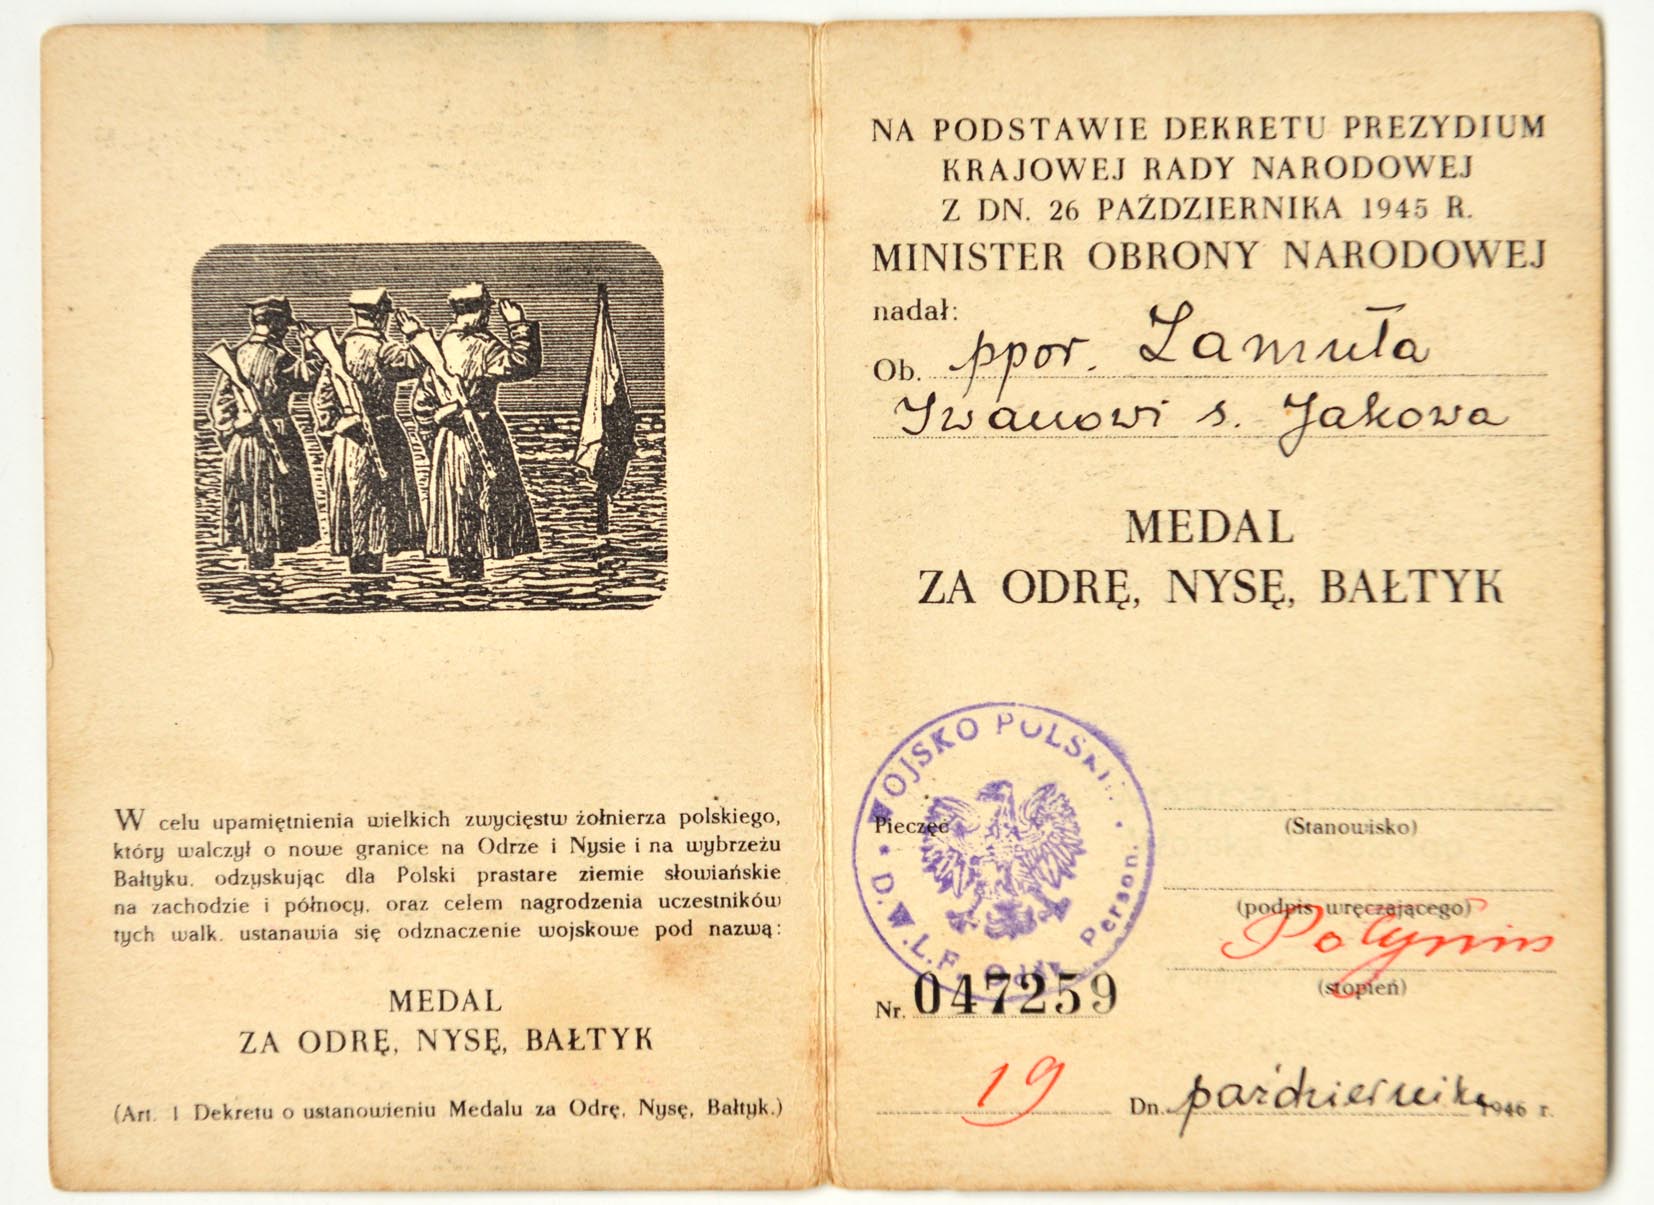 W celu upamiętnienia wielkich zwycięstw żołnierza polskiego,
który walczył o nowe granice na Odrze i Nysie i na wybrzeżu
Bałtyku, odzyskując dla Polski prastare ziemie słowiańskie
na zachodzie i północy, oraz celem nagrodzenia uczestników
tych walk, ustanawia się odznaczenie wojskowe pod nazwą:
MEDAL
ZA ODRĘ, NYSĘ, BAŁTYK
(Art. 1 Dekretu o ustanowieniu Medalu za Odrę, Nysę, Bałtyk.)
NA PODSTAWIE DEKRETU PREZYDIUM
KRAJOWEJ RADY NARODOWEJ
Z DN. 26 PAŹDZIERNIKA 1945 R.
MINISTER OBRONY NARODOWEJ
nadał:
Ob. ppor. Łamuła
Iwanowi s. Jakowa
MEDAL
ZA ODRĘ, NYSĘ, BAŁTYK
WOJSKO POLSKIE
D.W.L.F. Person.
Pieczęć
(Stanowisko)
(podpis wręczającego)
(stopień)
Nr. 047259
19 Dn. października 1946 r.